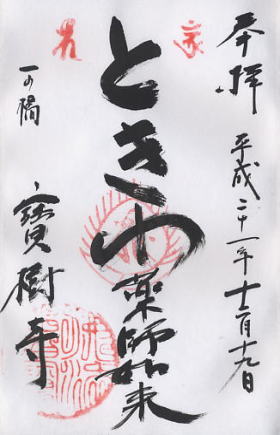 奉拝
平成二十一年十二月十九日
ときわ薬師如来
一の橋
寶樹寺